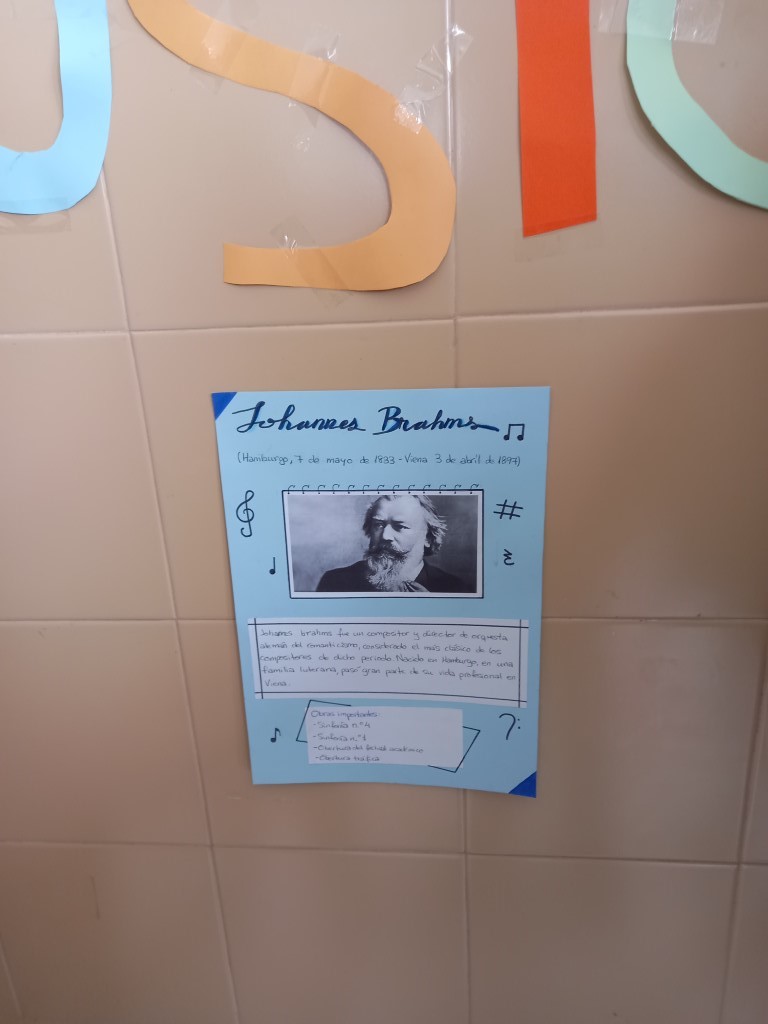 USIC
Johannes Brahms
(Hamburgo, 7 de mayo de 1833 - Viena 3 de abril de 1897)
Johannes brahms fue un compositor y director de orquesta
alemás del romanticismo, considerado el más clásico de los
compositores de dicho periodo. Nacido en Hamburgo, en una
familia luterana, pasó gran parte de su vida profesional en
Viena.
Obras importantes:
-Sinfonía n.º 4
-Sinfonía n.º 1
-Obertura del festival académico
-Obertura trágica